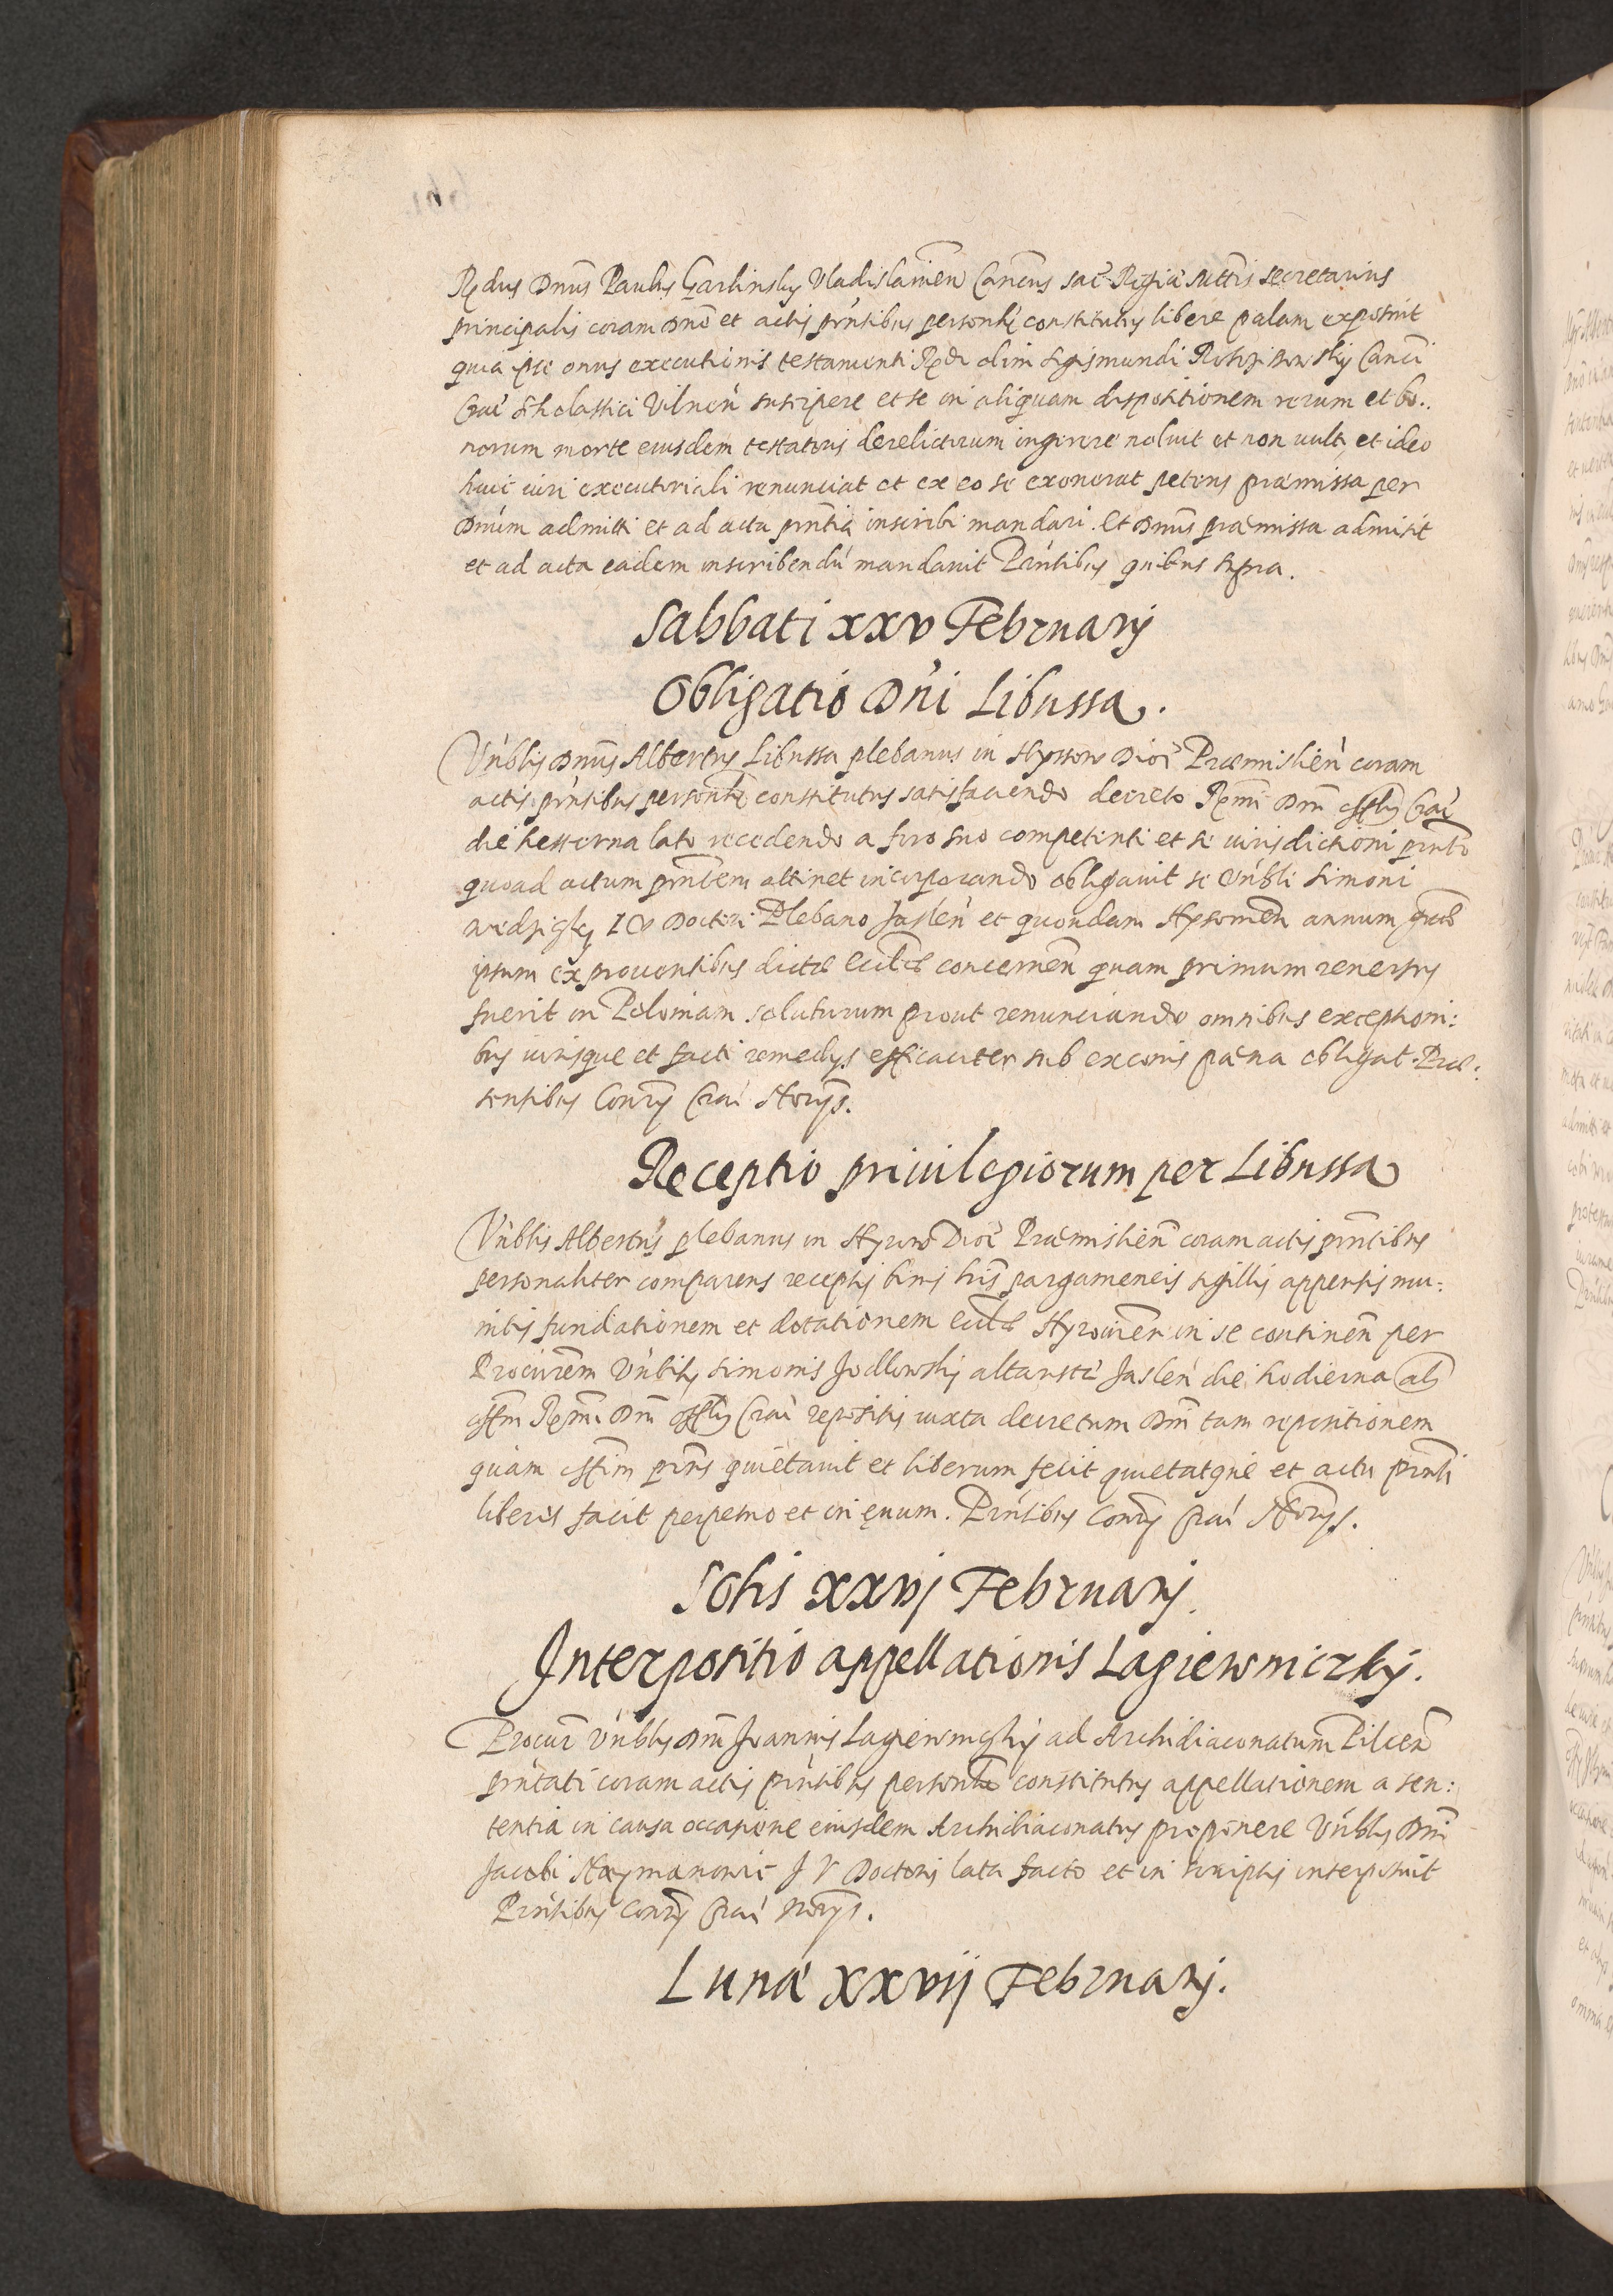 Rndus Dnus Paulus Garlinsky Vladislauien Cancus Sac Regiae Mttis Secretarius
principalis coram Dno et actis pntibus personlr constitutus libere palam exposuit
quia ipse onus executionis testamenti Rndi olim Sigismundi Canci
Crac Scholastici Vilnen suscipere et se in aliquam dispositionem rerum et bo..
norum morte eiusdem testatoris derelictorum ingerere noluit et non uult, et ideo
huic iuri executoriali renunciat et ex eo se exonerat petens praemissa per
Dnum admitti et ad acta pntia inscribi mandari. Et Dnus praemissa admisit
et ad acta eadem inscribendu mandauit Pntibus quibus supra.
Sabbati xxv Februarij
Obligatio Dni Libussa.
Vnblis Dnus Albertus Libussa plebanus in Hyrow Dioc Praemislien coram
actis pntibus personlr constitutus satisfaciendo decreto Rmi Dni Offlis Crac
die hesterna lato recedendo a foro suo competenti et se iurisdictioni pnti
quoad actum pntem attinet incorporando obligauit se Vnbli Simoni
I V Doctori Plebano Jaslen et quondam Hyrowien annum grae
ipsum ex prouentibus dictae Eccliae concernen quam primum reuersus
fuerit in Poloniam soluturum prout renunciando omnibus exceptioni:
bus iurisque et facti remedijs efficaciter sub excomis paena obligat. Prae:
sentibus Consrij Crac Notrijs.
Receptio priuilegiorum per Libussa
Vnblis Albertus plebanus in Hyrow Dioc Praemislien coram actis pntibus
personaliter comparens receptis binis lris pargameneis sigillis appensis mu:
nitis fundationem et dotationem Eccliae Hyrowien in se continen per
Procurem Vnblis Simonis Jodlowsky altaristae Jaslen die hodierna ad
offm Rmi Dni Offlis Crac repositis iuxta decretum Dni tam repositionem
quam offim pns quietauit et liberum fecit quietatque et actu pnti
liberū facit perpetuo et in euum. Pntibus Consrij Crac Notrijs.
Solis xxvj Februarij.
Interpositio appellationis Lagiewniczky.
Procur Vnblis Dni Joannis Lagiewnicky ad Archidiaconatum Pilcen
pntati coram actis pntibus personlr constitutus appellationem a sen:
tentia in causa occasione eiusdem Archidiaconatus pro Vnblis Dni
Jacobi Naymanowic J V Doctoris lata facto et in scriptis interposuit
Pntibus Consrij Crac Notrijs.
Lunae xxvij Februarij.